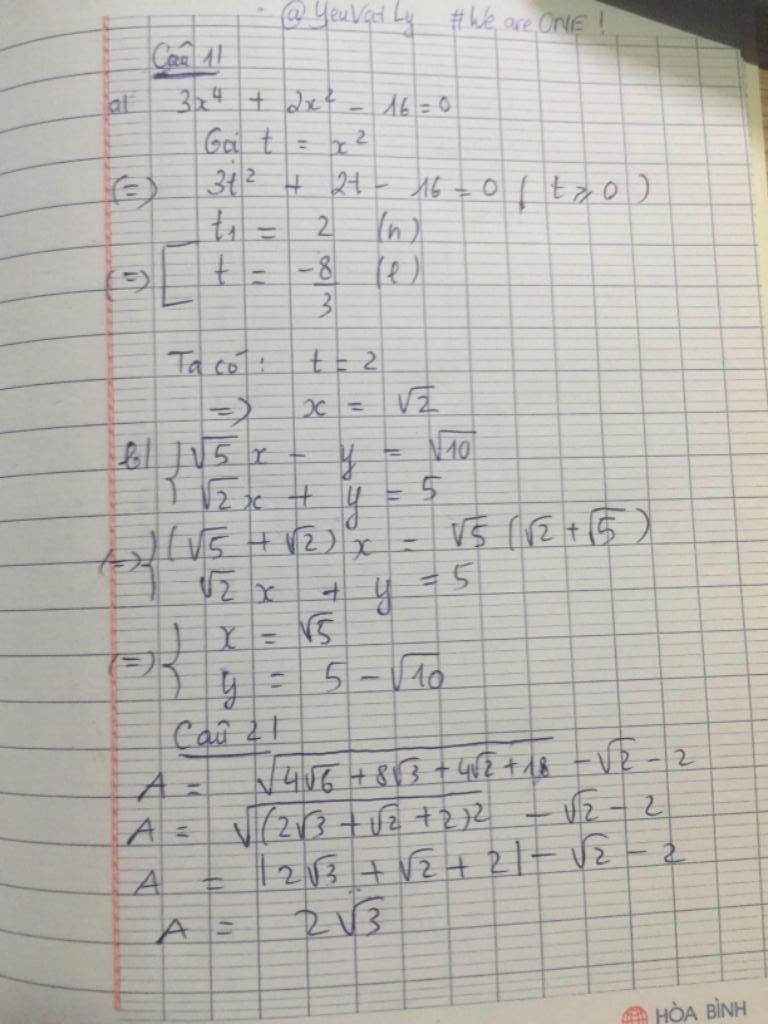 @YeuVatLy #We are ONE !
Câu 1|
a| 3x⁴ + 2x² - 16 = 0
Gọi t = x²
(=) 3t² + 2t - 16 = 0 ( t ⩾ 0 )
t₁ = 2 (n)
(=) [ t = -8/3 (l)
Ta có : t = 2
=) x = √2
b| { √5 x - y = √10
√2 x + y = 5
(=) { (√5 + √2) x = √5 (√2 + √5)
√2 x + y = 5
(=) { x = √5
y = 5 - √10
Câu 2|
A = √(4√6 + 8√3 + 4√2 + 18) - √2 - 2
A = √((2√3 + √2 + 2)²) - √2 - 2
A = |2√3 + √2 + 2| - √2 - 2
A = 2√3
HÒA BÌNH